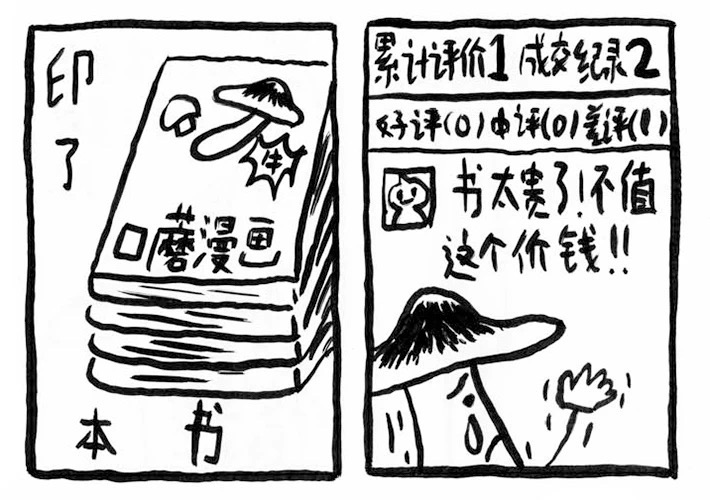 印了
牛
口蘑漫画
本书
累计评价1 成交纪录2
好评(0)中评(0)差评(1)
书太贵了!不值
这个价钱!!